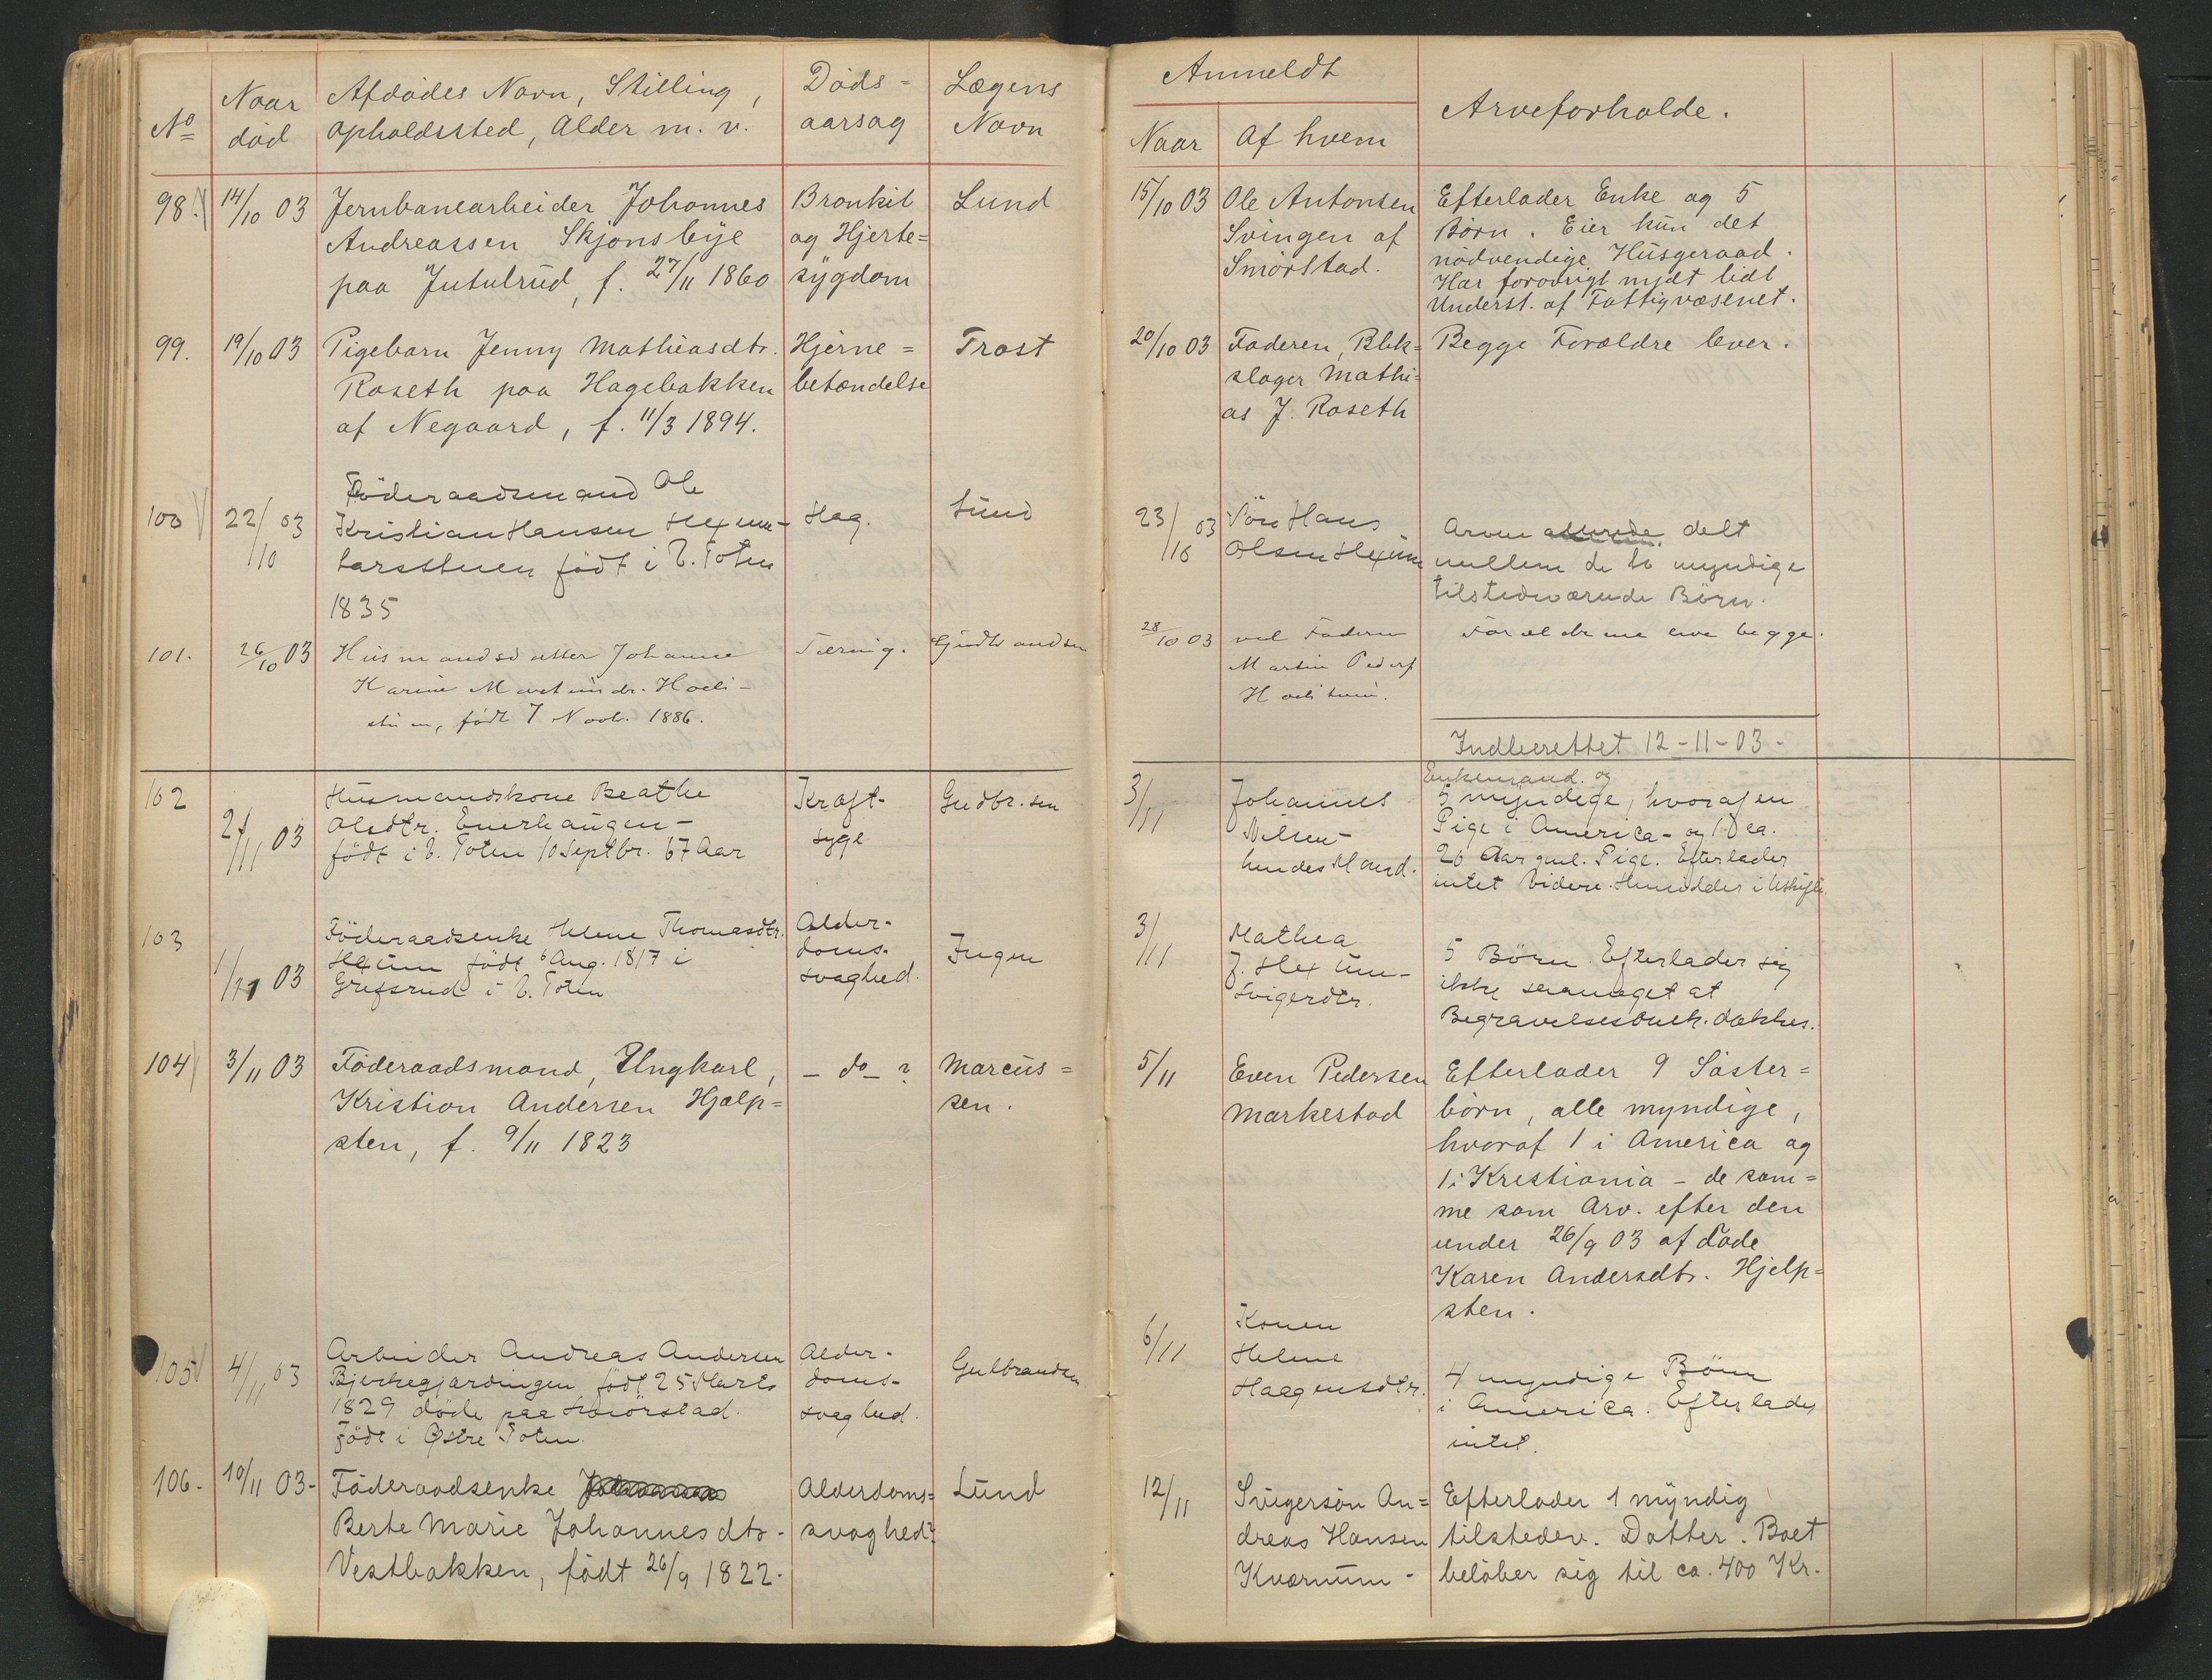 No
Naar
död
Afdödes Navn, Stilling,
Opholdssted, Alder m. v.
Döds-
aarsag
Lægens
Navn
Anmeldt
Naar
Af hvem
Arveforholde.
98.
14/10 03
Jernbanearbeider Johannes
Andreassen Skjønsbye
paa Jutulrud, f. 27/11 1860
Bronkit
og Hjerte=
sygdom
Lund
15/10 03
Ole Antonsen
Svingen af
Smörstad.
Efterlader Enke og 5
Börn. Eier kun det
nödvendige Husgeraad.
Har forövrigt nydt lidt
Underst. af Fattigvæsenet.
99.
19/10 03
Pigebarn Jenny Mathiasdtr.
Roseth paa Hagebakken
af Negaard, f. 11/3 1894.
Hjerne=
betændelse
Trost
20/10 03
Faderen, Blik=
slager Mathi=
as J. Roseth
Begge Forældre lever.
100
22/10 03
Föderaadsmand Ole
Kristian Hansen Hexum-
födt i V. Toten
1835
Slag.
Lund
23/10 03
Sön Hans
Olsen Hexum
Arven allerede delt
mellem de to myndige
tilstedeværende Börn.
101.
26/10 03
Husmandsdatter Johanne
Karine Martinsdr. Hoeli-
födt 7 Novb. 1886.
Tæring.
Gudbrandsen
28/10 03
ved Faderen
Martin Peders
Forældrene leve begge.
Indberettet 12-11-03-
102
2/11 03
Husmandskone Beathe
Olsdtr. Enerhaugen-
födt i V. Toten 10 Septbr. 67 Aar
Kræft-
syge
Gudbr.sen
3/11
Johannes
Nilsen-
hendes Mand.
Enkemand og
5 myndige, hvoraf en
Pige i America- og 1 D ca.
26 Aar gml. Pige. Efterlader
intet videre.
103
1/11 03
Föderaadsenke Helene Thomasdtr.
Hexum födt 6 Aug. 1817 i
Grefsrud i V. Toten
Alder-
doms-
svaghed.
Ingen
3/11
Mathea
J. Hexum-
Svigerdtr.
5 Börn. Efterlader sig
ikke saameget at
dækkes.
104
3/11 03
Föderaadsmand, Ungkarl,
Kristian Andersen Hjælp=
sten, f. 9/11 1823
- do - ?
Marcus=
sen.
5/11
Even Pedersen
Markestad
Efterlader 9 Söster=
börn, alle myndige,
hvoraf 1 i America og
1 i Kristiania - de sam=
me som Arv. efter den
under 26/9 03 afdöde
Karen Andersdtr. Hjelp=
sten.
105
4/11 03
Arbeider Andreas Andersen
Bjerkegjærdingen födt 25 Marts
1829 döde paa Smörstad.
Födt i Østre Toten.
Alder-
doms-
svaghed.
Gulbrandsen
6/11
Konen
Helene
Haagensdtr.
4 myndige Börn
i America. Efterlader
intet.
106-
10/11 03-
Föderaadsenke
Berte Marie Johannesdtr.
Vestbakken, födt 26/9 1822.
Alderdoms=
svaghed?
Lund
12/11
Svigersön An=
dreas Hansen
Kværnum-
Efterlader 1 myndig
tilstedev. Datter. Boet
belöber sig til ca. 400 Kr.